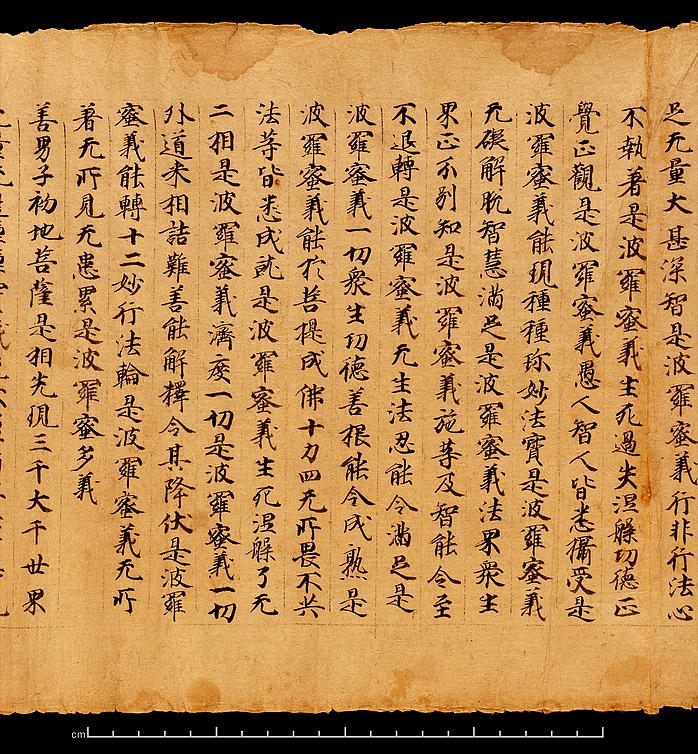 足无量大甚深智是波羅蜜義行非行法心
不執著是波羅蜜義生死過失涅槃功德正
覺正觀是波羅蜜義愚人智人皆悉攝受是
波羅蜜義能現種種珎妙法寶是波羅蜜義
无礙解脫智慧滿足是波羅蜜義法界衆生
界正不別知是波羅蜜義施等及智能令至
不退轉是波羅蜜義无生法忍能令滿足是
波羅蜜義一切衆生功德善根能令成熟是
波羅蜜義能於菩提成佛十力四无所畏不共
法等皆悉成就是波羅蜜義生死涅槃了无
二相是波羅蜜義濟度一切是波羅蜜義一切
外道来相詰難善能解釋令其降伏是波羅
蜜義能轉十二妙行法輪是波羅蜜義无所
著无所見无患累是波羅蜜多義
善男子初地菩薩是相先現三千大千世界
cm